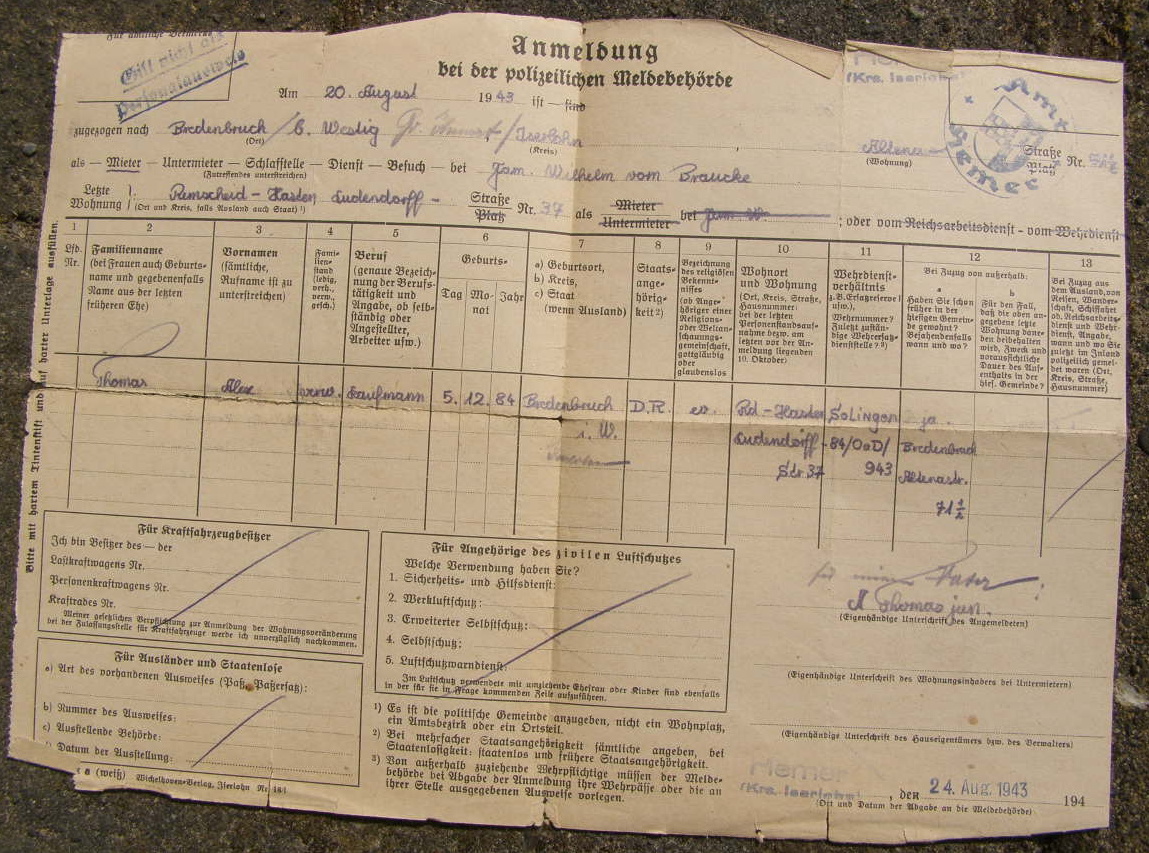 Für amtliche Vermerke
Gilt nicht als
Personalausweis
Anmeldung
bei der polizeilichen Meldebehörde
Am 20. August 1943 ist — sind
(Krs. Iserlohn)
Amt Hemer
zugezogen nach Bredenbruch / b. Westig / Iserlohn Altena Straße Nr.
(Ort) (Kreis) (Wohnung) Platz
als — Mieter — Untermieter — Schlafstelle — Dienst — Besuch — bei Fam. Wilhelm vom Braucke
(Zutreffendes unterstreichen)
Letzte Wohnung: Remscheid - Hasten Ludendorff - Straße Platz Nr. 37 als Mieter Untermieter bei Fam. W. ; oder vom Reichsarbeitsdienst - vom Wehrdienst
(Ort und Kreis, falls Ausland auch Staat) ¹)
Bitte mit hartem Tintenstift und auf harter Unterlage ausfüllen.
1 2 3 4 5 6 7 8 9 10 11 12 13
Lfd. Nr.
Familienname
(bei Frauen auch Geburts-
name und gegebenenfalls
Name aus der letzten
früheren Ehe)
Vornamen
(sämtliche,
Rufname ist zu
unterstreichen)
Fami-
lien-
stand
(ledig,
verh.,
verw.,
gesch.)
Beruf
(genaue Bezeich-
nung der Berufs-
tätigkeit und
Angabe, ob selb-
ständig oder
Angestellter,
Arbeiter usw.)
Geburts-
Tag Mo-
nat Jahr
a) Geburtsort,
b) Kreis,
c) Staat
(wenn Ausland)
Staats-
ange-
hörig-
keit ²)
Bezeichnung
des religiösen
Bekennt-
nisses
(ob Ange-
höriger einer
Religions-
oder Weltan-
schauungs-
gemeinschaft,
gottgläubig
oder
glaubenslos
Wohnort
und Wohnung
(Ort, Kreis, Straße,
Hausnummer)
bei der letzten
Personenstandsauf-
nahme bezw. am
letzten vor der An-
meldung liegenden
10. Oktober)
Wehrdienst-
verhältnis
z. B. Ersatzreserve I
usw.
Wehrnummer?
Zuletzt zustän-
dige Wehrersatz-
dienststelle? ³)
Bei Zuzug von außerhalb:
a
Haben Sie schon
früher in der
hiesigen Gemein-
de gewohnt?
Bejahendenfalls
wann und wo?
b
Für den Fall,
daß die oben an-
gegebene letzte
Wohnung dane-
ben beibehalten
wird, Zweck und
voraussichtliche
Dauer des Auf-
enthalts in der
hies. Gemeinde?
Bei Zuzug aus
dem Ausland, von
Reisen, Wander-
schaft, Schiffahrt
od. Reichsarbeits-
dienst und Wehr-
dienst, Angabe,
wann und wo Sie
zuletzt im Inland
polizeilich gemel-
det waren (Ort,
Kreis, Straße,
Hausnummer)
Thomas Alex verw. Kaufmann 5. 12. 84 Bredenbruch D.R. ev. Rd - Hasten Solingen ja.
i. W. Ludendorff - 84/OaD/ Bredenbruch
Str. 37 943 Altenastr.
71 ½
Für Kraftfahrzeugbesitzer
Ich bin Besitzer des — der
Lastkraftwagens Nr.
Personenkraftwagens Nr.
Kraftrades Nr.
Meiner gesetzlichen Verpflichtung zur Anmeldung der Wohnungsveränderung
bei der Zulassungsstelle für Kraftfahrzeuge werde ich unverzüglich nachkommen.
Für Ausländer und Staatenlose
a) Art des vorhandenen Ausweises (Paß, Paßersatz):
b) Nummer des Ausweises:
c) Ausstellende Behörde:
Datum der Ausstellung:
(weiß) Wichelhoven-Verlag, Iserlohn Nr.
Für Angehörige des zivilen Luftschutzes
Welche Verwendung haben Sie?
1. Sicherheits- und Hilfsdienst:
2. Werkluftschutz:
3. Erweiterter Selbstschutz:
4. Selbstschutz:
5. Luftschutzwarndienst:
Im Luftschutz verwendete mit umziehende Ehefrau oder Kinder sind ebenfalls
in der für sie in Frage kommenden Zeile aufzuführen.
¹) Es ist die politische Gemeinde anzugeben, nicht ein Wohnplatz,
ein Amtsbezirk oder ein Ortsteil.
²) Bei mehrfacher Staatsangehörigkeit sämtliche angeben, bei
Staatenlosigkeit: staatenlos und frühere Staatsangehörigkeit.
³) Von außerhalb zuziehende Wehrpflichtige müssen der Melde-
behörde bei Abgabe der Anmeldung ihre Wehrpässe oder die an
ihrer Stelle ausgegebenen Ausweise vorlegen.
für meinen Vater:
A Thomas jun.
(Eigenhändige Unterschrift des Angemeldeten)
(Eigenhändige Unterschrift des Wohnungsinhabers bei Untermietern)
(Eigenhändige Unterschrift des Hauseigentümers bzw. des Verwalters)
Hemer
(Krs. Iserlohn) , den 24. Aug. 1943 194
(Ort und Datum der Abgabe an die Meldebehörde)